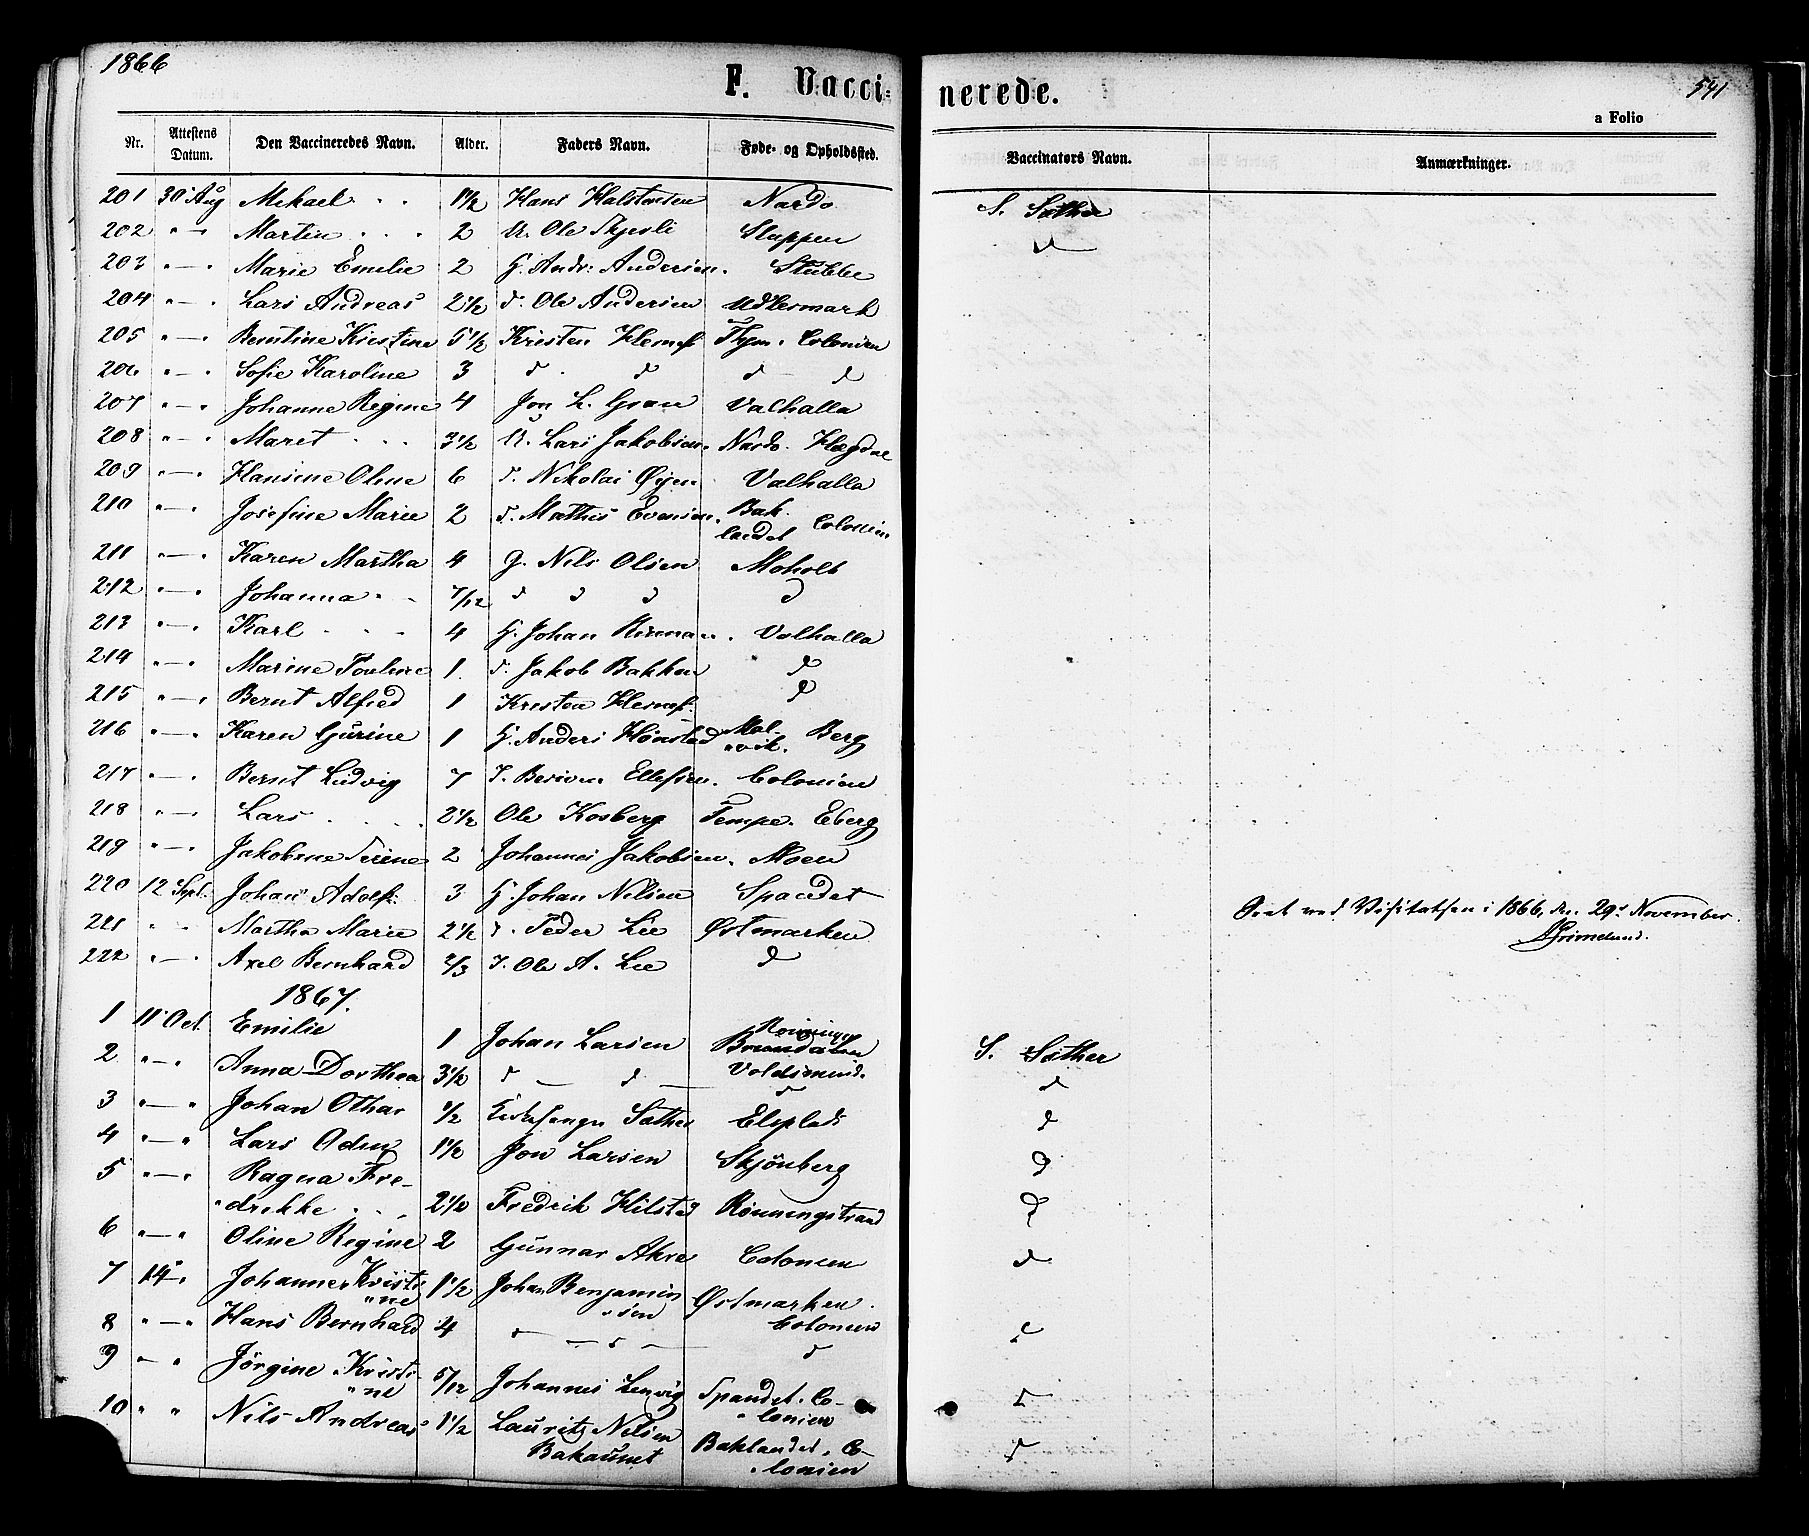 1866
F. Vacci-
nerede.
541
a Folio
Nr. Attestens Datum. Den Vaccineredes Navn. Alder. Faders Navn. Føde- og Opholdssted. Vaccinatørs Navn. Anmærkninger.
201 30 Aug Mikael 1 1/2 Hans Halstensen Nardo S. Sæther
202 " — " Martin 2 U. Ole Stuppen d
203 " — " Marie Emilie 2 G. Andr: Andersen. Stubbe
204 " — " Lars Andreas 2 1/2 I. Ole Andersen
205 " — " Berntine Kirstine 5 1/2 Kristen Colonien
206 " — " Sofie Karoline 3 d d d — d
207 " — " Johanne Regine 4 Jon L. Gran Valhalla
208 " — " Maret 3 1/2 U. Lars Jakobsen. Nardo.
209 " — " Hansine Oline 6 I. Nikolai Øyen Valhalla
210 " — " Josefine Marie 2 I. Mathis Evensen. Bak-landet Colonien
211 " — " Karen Martha 4 G. Nils Olsen Moholt
212 " — " Johanna 7/12 d d d d
213 " — " Karl 4 G. Johan Valhalla
214 " — " Marine Pouline 1 I. Jakob Bakken d
215 " — " Bernt Alfred 1 Kristen d
216 " — " Karen Gurine 1 G. Anders Hønstad Mal-vik. Berg
217 " — " Bernt Ludvig 7 I. Ellefsen. Colonien
218 " — " Lars 2 1/2 Ole Kosberg Tempe. Eberg
219 " — " Jakobine 2 Johannes Jakobsen. Moen
220 12 Sept: Johan Adolf: 3 G. Johan Nilsen Spandet
221 " " Martha Marie 2 1/2 I. Peder Lie Østmarken
222 " — " Axel Bernhard 2/3 I. Ole A. Lie d
Seet ved Visitatsen i 1866, den 29de November.
Grimelund.
1867.
1 11 Oct. Emilie 1 Johan Larsen Voldsmind. S. Sæther
2 " — " Anna Dorthea 3 1/2 d — d — d d
3 " — " Johan Othar 1/2 Kirkesanger Sæther Elsplads d
4 " — " Lars Odin 1 1/2 Jon Larsen Skjönberg d
5 " — " Ragna Fre-
drikke 2 1/2 Fredrik Hilstad Rönningstrand d
6 " — " Oline Regine 2 Gunnar Colonien d
7 14 " Johanne Kristi
"ne 1 1/2 Johan Benjamin
"sen Østmarken
Colonien
8 " — " Hans Bernhard 4 d — d — d d
9 — " Jörgine Kristi
"ne 5/12 Johannes Lenvig Spandet. Co-
"lonien d
10 " " Nils Andreas 1 1/2 Lauritz Nilsen
Bakaunet Baklandet. Co-
"lonien d